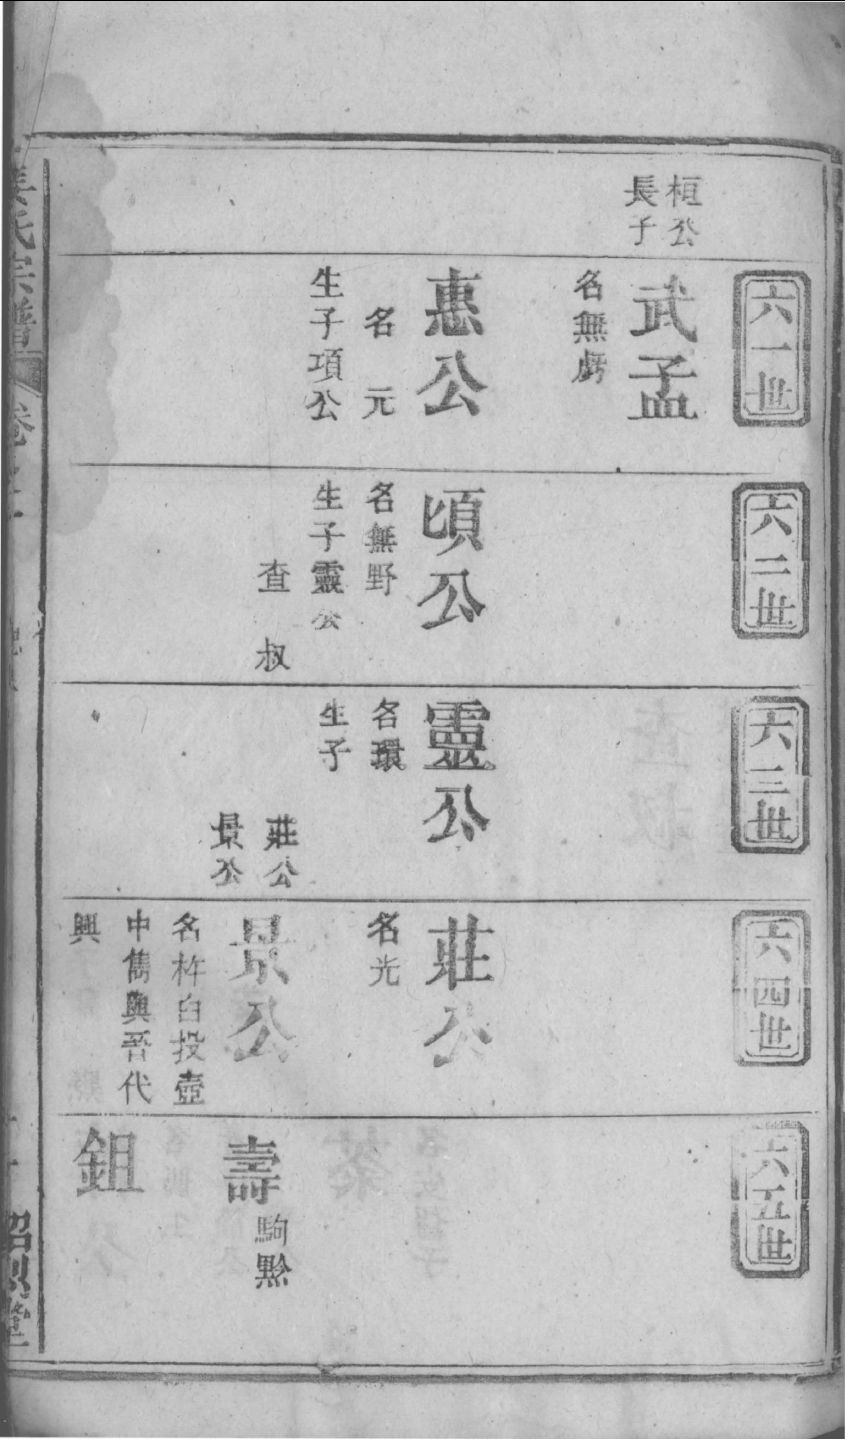 桓公
長子
六一世
武孟
名無虧
惠公
名元
生子項公
六二世
頃公
名無野
生子靈公
查叔
六三世
靈公
名環
生子
莊公
景公
六四世
莊公
名光
景公
名杵臼投壺
中雋與晉代
興
六五世
壽
駒黔
鉏
氏宗譜